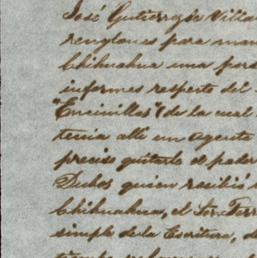 José Gutierrez de Villa
renglones para man
Chihuahua una pers
informes respecto del
"Encinillas" (de la cual
tenia allí un agente
preciso quitarle el poder
Dichos quien recibió
Chihuahua, el Sor. Terr
simple de la Escritura, d